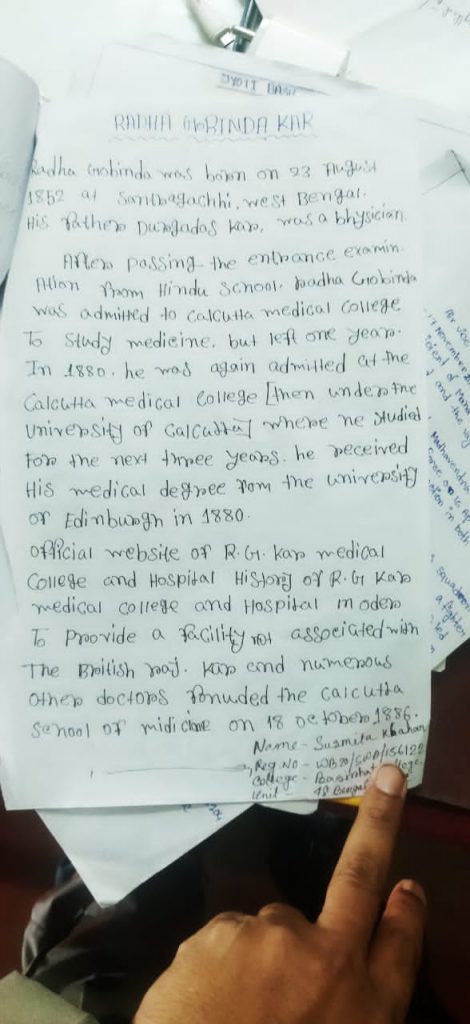 JYOTI BASU
RADHA GOBINDA KAR
Radha Gobinda was born on 23 August
1852 at Santragachhi, west Bengal.
His father Durgadas kar, was a bhysician.
After passing the entrance examin-
Ation from Hindu School. radha Gobinda
was admitted to calcutta medical college
To study medicine. but left one year.
In 1880. he was again admitted at the
Calcutta medical college [then under the
University of Calcutta] where he studied
For the next three years. he received
His medical degree rom the university
or Edinburgh in 1880.
official website of R.G. kar medical
College and Hospital History of R.G Kar
medical college and Hospital in oder
To provide a facility not associated with
The British raj. Kar and numerous
other doctors fonuded the calcutta
School of midicine on 18 october 1886.
Name - Susmita Khatun
Reg. No - WB20/SWD/156122
College -
Unit -